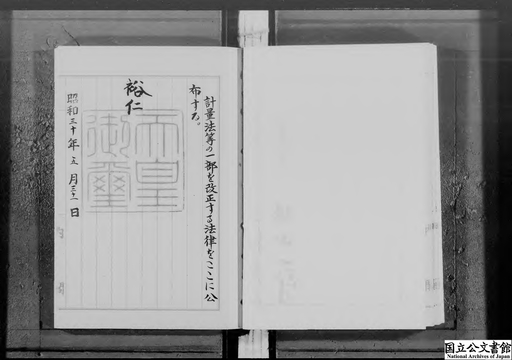 計量法等の一部を改正する法律をここに公
布する。
裕仁
天皇
御璽
昭和三十年五月三十一日
国立公文書館
National Archives of Japan